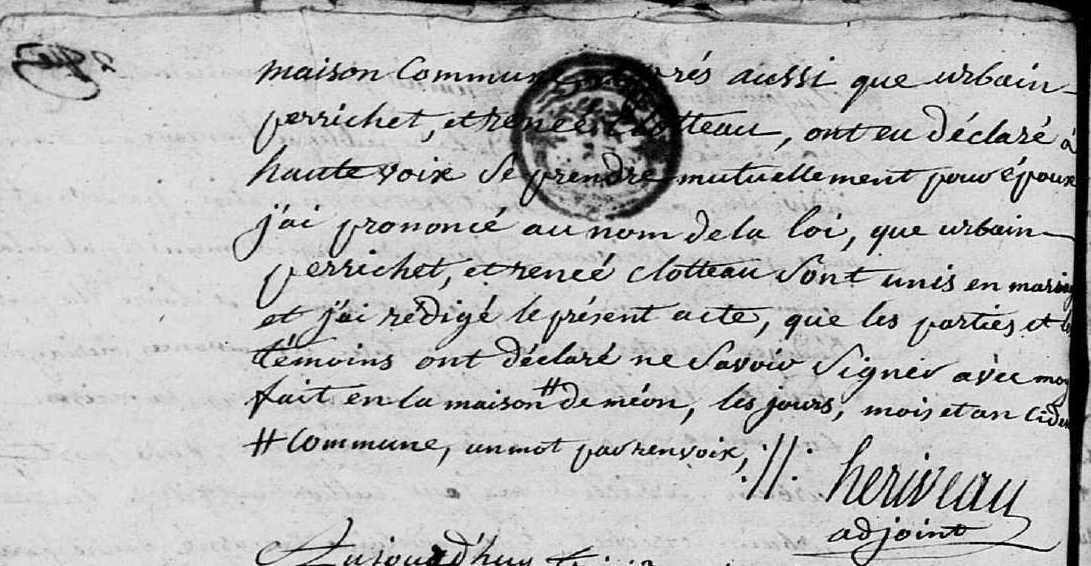 maison Commune aprés aussi que urbain
perrichet, et reneé Clotteau, ont eu déclaré à
haute voix se prendre mutuellement pour époux
j'ai prononcé au nom de la loi, que urbain
perrichet, et reneé Clotteau sont unis en
et j'ai rédigé le présent acte, que les parties et
témoins ont déclaré ne savoir signer avec moy
fait en la maison # de méon, les jours, mois et an
# Commune, un mot par renvoix, heriveau
adjoint
Aujourd'huy